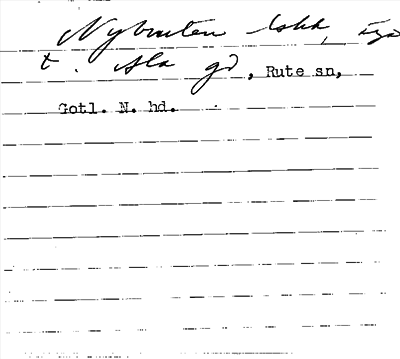 Nybruten lskd, äga
t. Ala gd, Rute sn,
Gotl. N. hd.